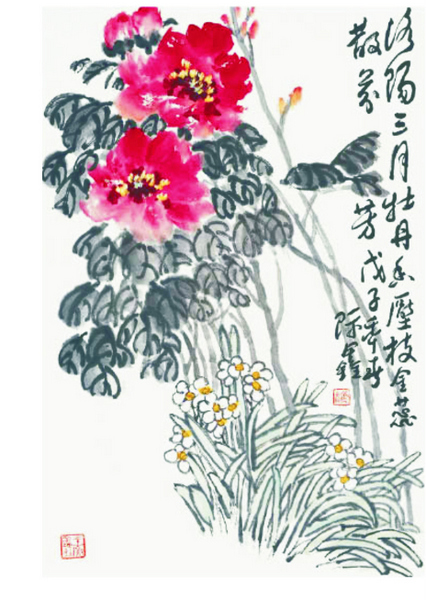 洛阳三月牡丹香壓枝金蕊
散芬芳戊子季春
陈鑫